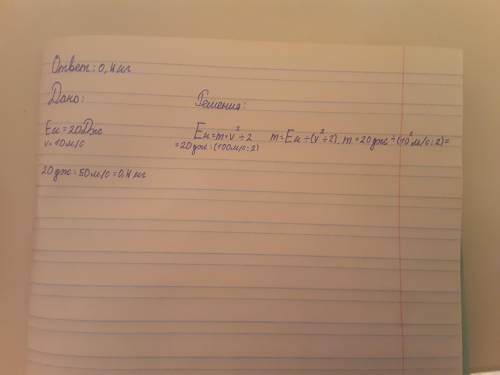 Ответ: 0,4 кг
Дано:
Решения:
Eк = 20 Дж
v = 10 м/с
Eк = m • v² ÷ 2 m = Eк ÷ (v² ÷ 2). m = 20 дж ÷ (10² м/с : 2) =
= 20 дж : (100 м/с : 2)
20 дж : 50 м/с = 0,4 кг